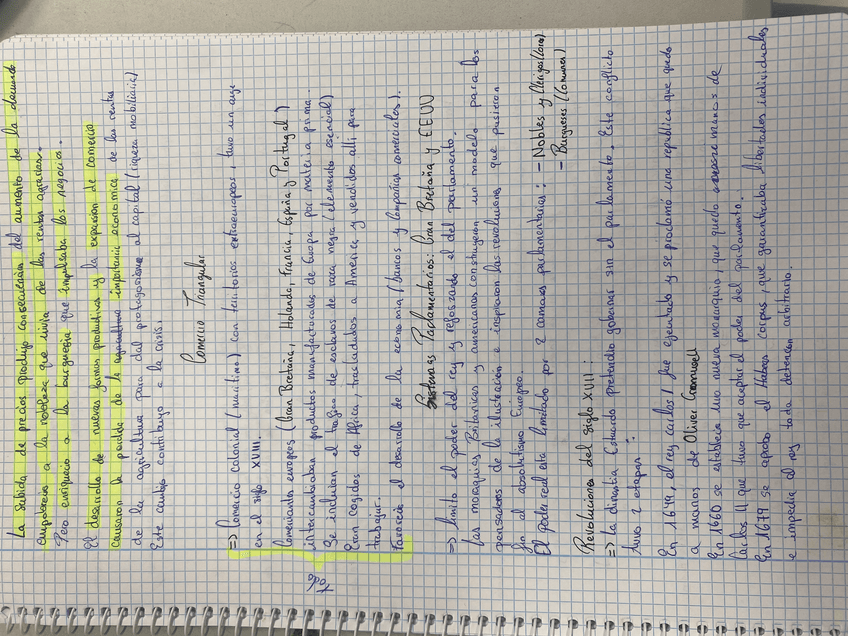 La Subida de precios produjo consecuencias del aumento de la demanda
empobrecia a la nobleza que vivia de las rentas agrarias.
Pero enriquecio a la burguesia que impulsaba los negocios.
El desarrollo de nuevas formas productivas y la expasion de comercio
causaron la perdida de la importancia economica de las rentas
de la agricultura para dal protagonismo al capital (riqueza mobiliaria)
Este cambio contribuyo a la crisis.
Comercio Triangular
=> Comercio colonial (maritimo) con territorios extraeuropeos, tuvo un auge
en el siglo XVIII.
Comerciantes europeos (Gran Bretaña, Holanda, Francia, España y Portugal)
intercambiaban productos manufacturados de Europa por materia prima.
Se incluian el trafico de esclavos de raza negra (elemento esencial)
Eran cogidos de Africa, trasladados a America y vendidos alli para
trabajar.
Favorecio el desarrollo de la economia (bancos y compañias comerciales).
Sistemas Parlamentarios: Gran Bretaña y EEUU
=> limito el poder del rey y reforzando el del parlamento.
Las monarquias Britanicas y americanas constituyeron un modelo para los
pensadores de la ilustración e inspiraron las revoluciones que pusieron
fin al absolutismo Europeo.
El poder real esta limitado por 2 camaras parlamentarias: - Nobles y Clerigos (lores)
- Burgueses (Comunes)
Revoluciones del Siglo XVII:
=> La dinastia Estuardo pretendio gobernar sin el parlamento. Este conflicto
tuvo 2 etapas:
En 1649, el rey Carlos I fue ejecutado y se proclamó una republica que quedo
a manos de Oliver Cromwell
En 1660 se establecio una nueva monarquia, que quedo a manos de
Carlos II que tuvo que aceptar el poder del parlamento.
En 1679 se aprobo el Habeas Corpus, que garantizaba libertades individuales
e impedia al rey toda detencion arbitraria.